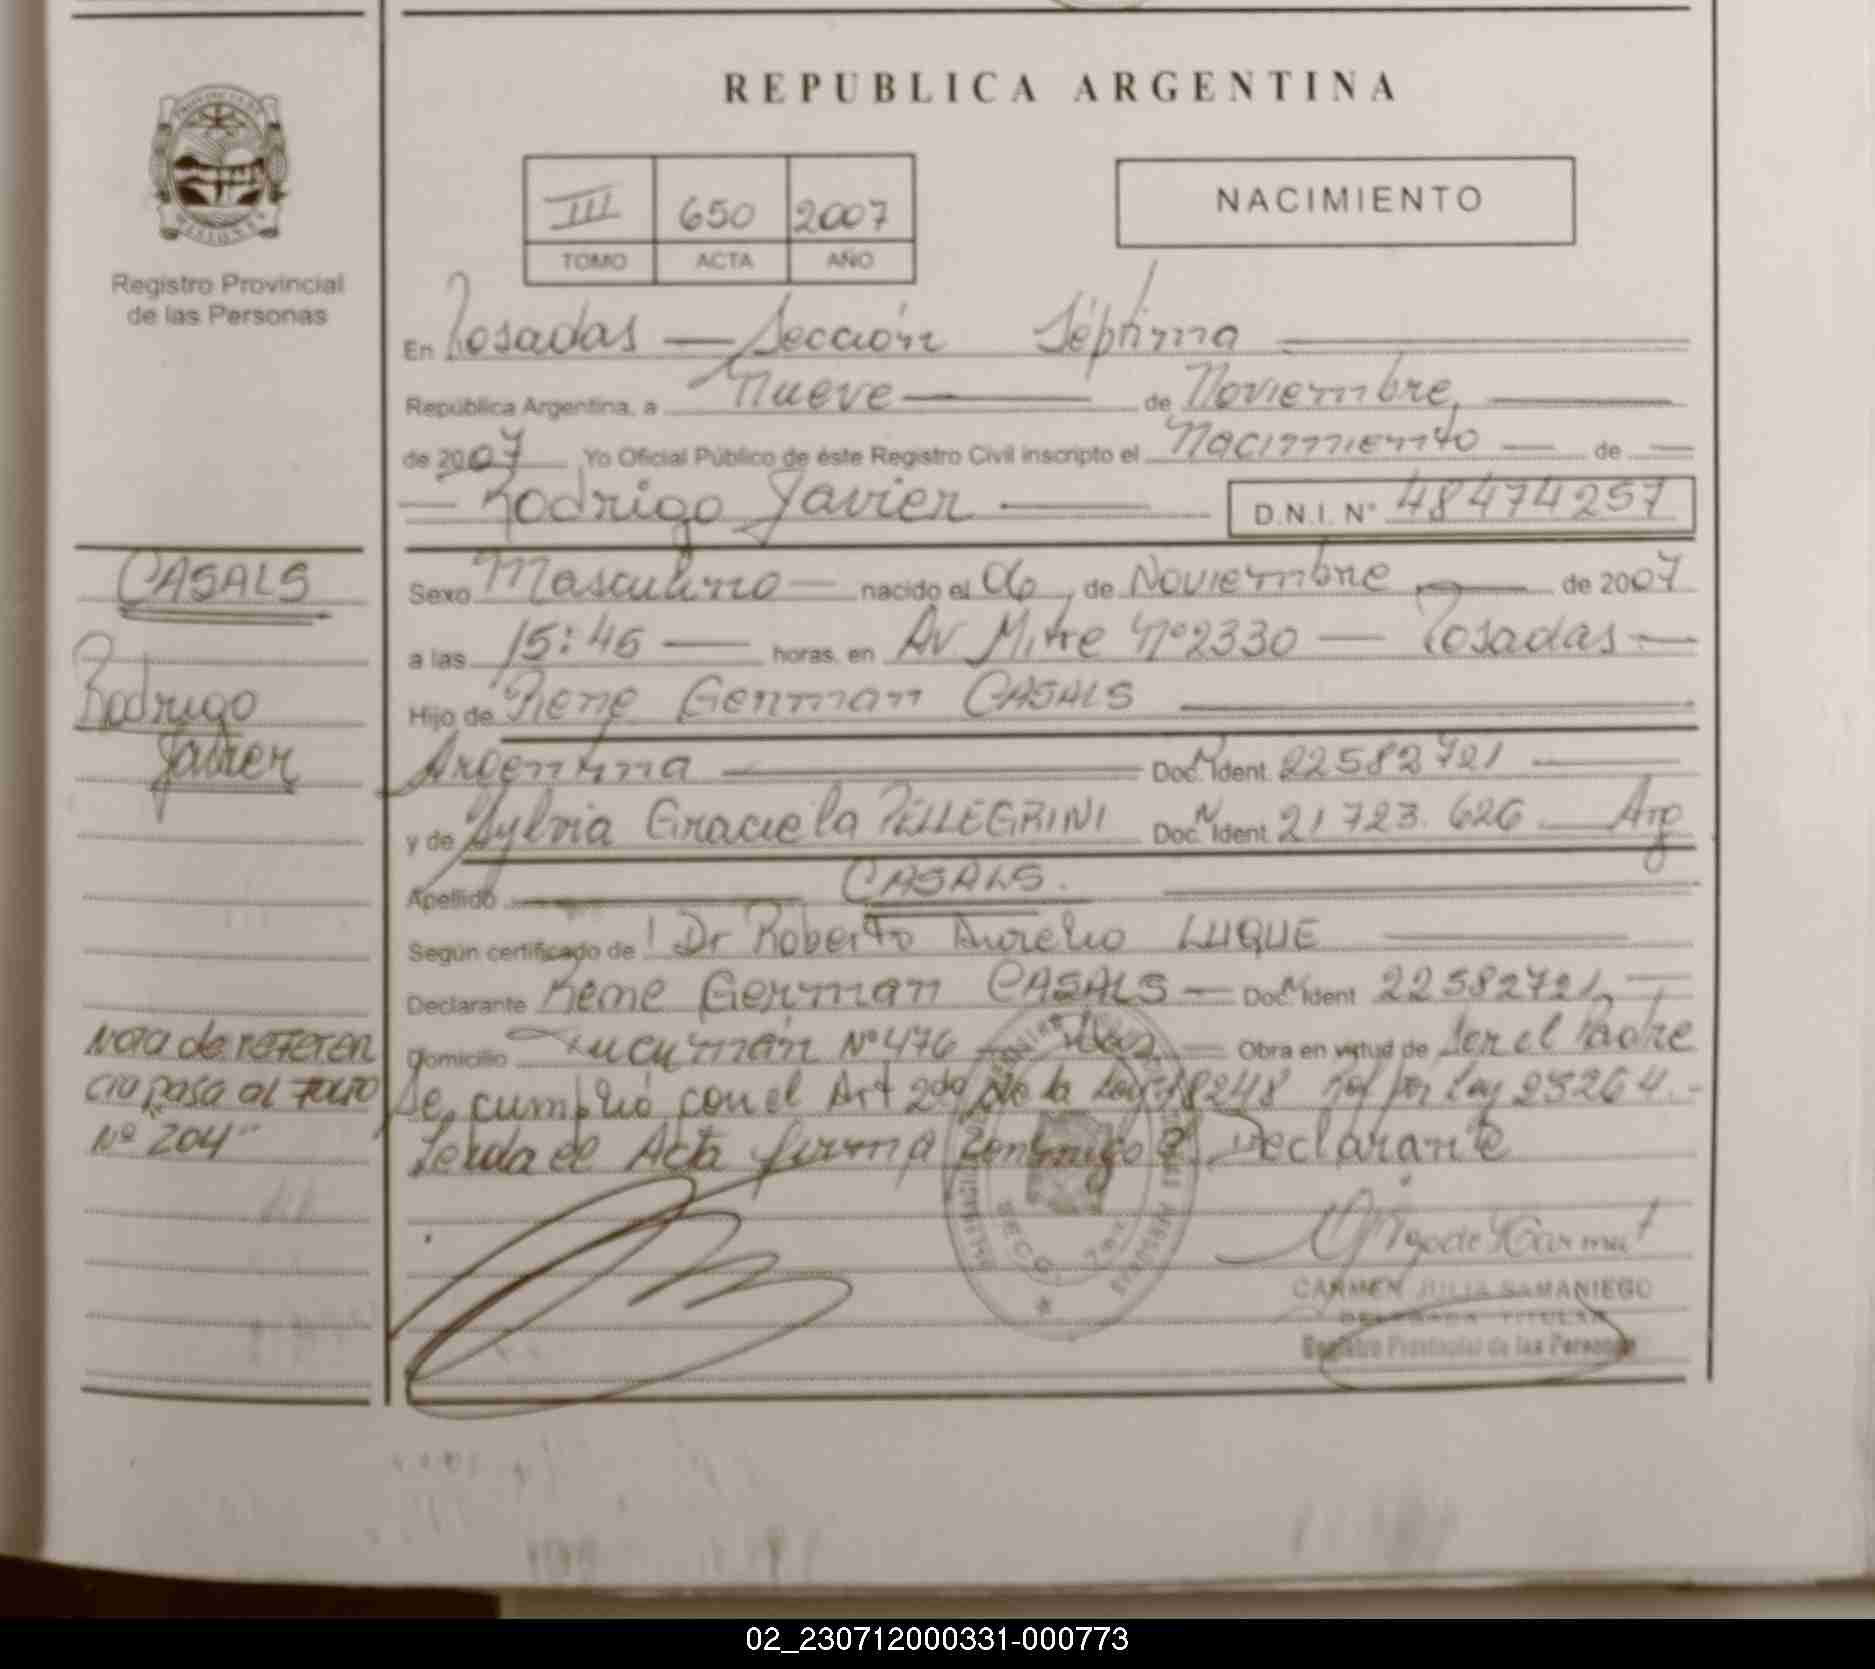 REPUBLICA ARGENTINA
III 650 2007
TOMO ACTA AÑO
NACIMIENTO
Registro Provincial
de las Personas
En Posadas — Sección Séptima
República Argentina, a Nueve — de Noviembre,
de 2007 Yo Oficial Público de éste Registro Civil inscripto el Nacimiento — de —
— Rodrigo Javier — D.N.I. N° 48474257
CASALS
Rodrigo
Javier
Sexo Masculino — nacido el 06, de Noviembre — de 2007
a las 15:45 — horas, en Av Mitre Nº2330 — Posadas —
Hijo de Rene German CASALS
Argentina — Doc. N Ident. 22582721 —
y de Sylvia Graciela PELLEGRINI Doc. N Ident. 21723.626 — Arg
Apellido — CASALS.
Según certificado de Dr Roberto Aurelio LUQUE
Declarante Rene German CASALS — Doc. N Ident 22582721, —
Domicilio Tucumán Nº476 — Obra en virtud de Ser el Padre
Se cumplió con el Art 2do de la Ley 18248 Ref por Ley 23264.-
Leida el Acta firma conmigo el Declarante
Nota de referen
cia pasa al Folio
Nº 204"
SECC. 7ma
CARMEN JULIA SAMANIEGO
DELEGADA TITULAR
Registro Provincial de las Personas
02_230712000331-000773